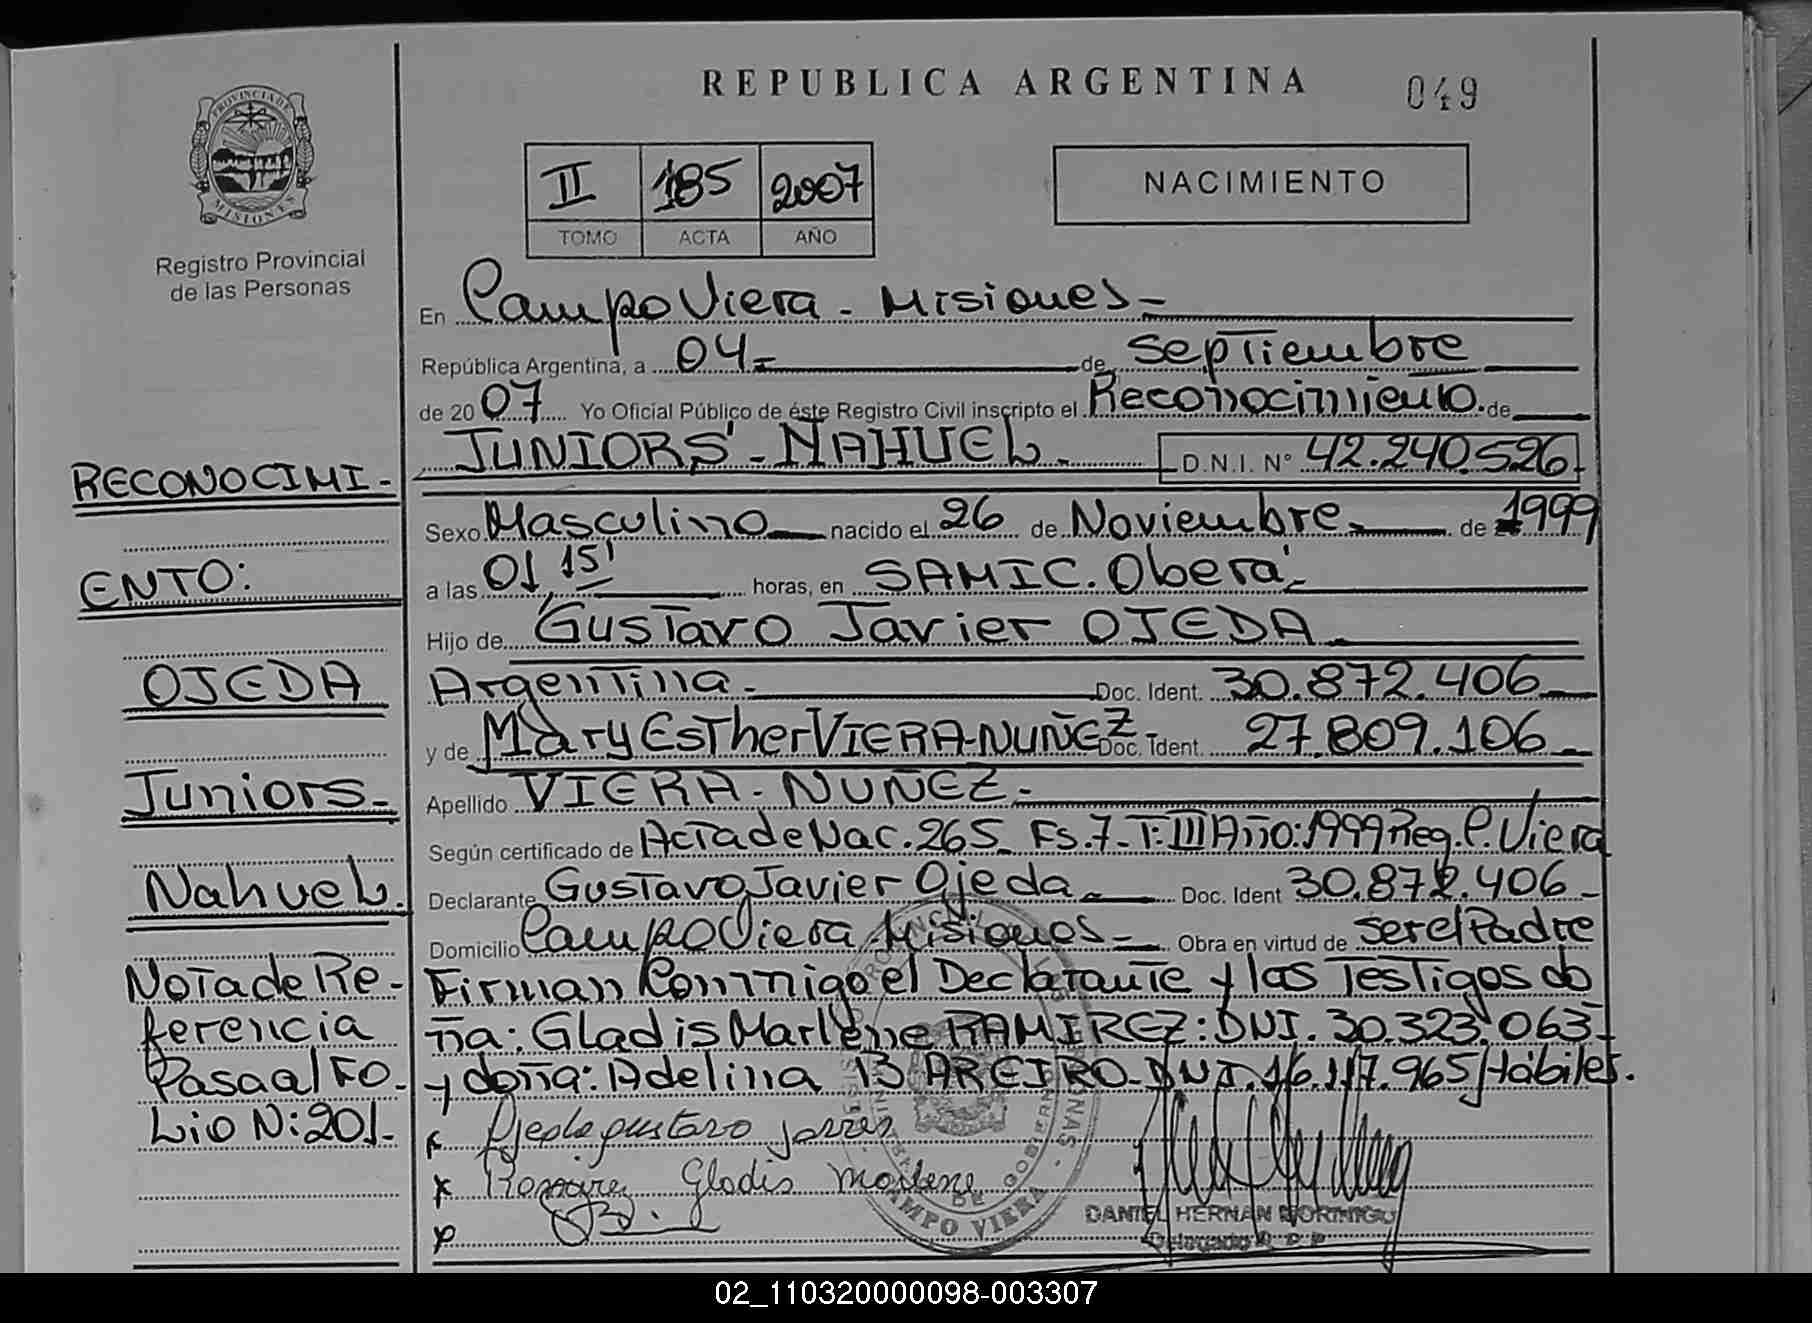 REPUBLICA ARGENTINA
049
PROVINCIA DE
MISIONES
Registro Provincial
de las Personas
II 185 2007
TOMO ACTA AÑO
NACIMIENTO
En Campo Viera - Misiones -
República Argentina, a 04 - de Septiembre
de 2007 Yo Oficial Público de éste Registro Civil inscripto el Reconocimiento de
JUNIORS - NAHUEL - D.N.I. N° 42.240.526
Sexo Masculino nacido el 26 de Noviembre de 1999
a las 01,15' horas, en SAMIC. Oberá -
Hijo de Gustavo Javier OJEDA
Argentina - Doc. Ident. 30.872.406
y de Mary Esther VIERA-NUÑEZ Doc. Ident. 27.809.106
Apellido VIERA - NUÑEZ -
Según certificado de Acta de Nac. 265 Fs. 7 - T: III Año: 1999 Reg. C. Viera
Declarante Gustavo Javier Ojeda Doc. Ident 30.872.406
Domicilio Campo Viera - Misiones - Obra en virtud de ser el Padre
Firman conmigo el Declarante y las Testigos do
ña: Gladis Marlene RAMIREZ: DNI. 30.323.063
y doña: Adelina BAREIRO - DNI. 16.117.965 / Hábiles.
Ojeda gustavo
Ramirez Gladis Marlene
CAMPO VIERA
DANIEL HERNAN MORINIGO
Delegado R. P. P.
RECONOCIMI-
ENTO:
OJEDA
Juniors-
Nahuel.
Nota de Re-
ferencia
Pasa al Fo-
lio N: 201-
02_110320000098-003307